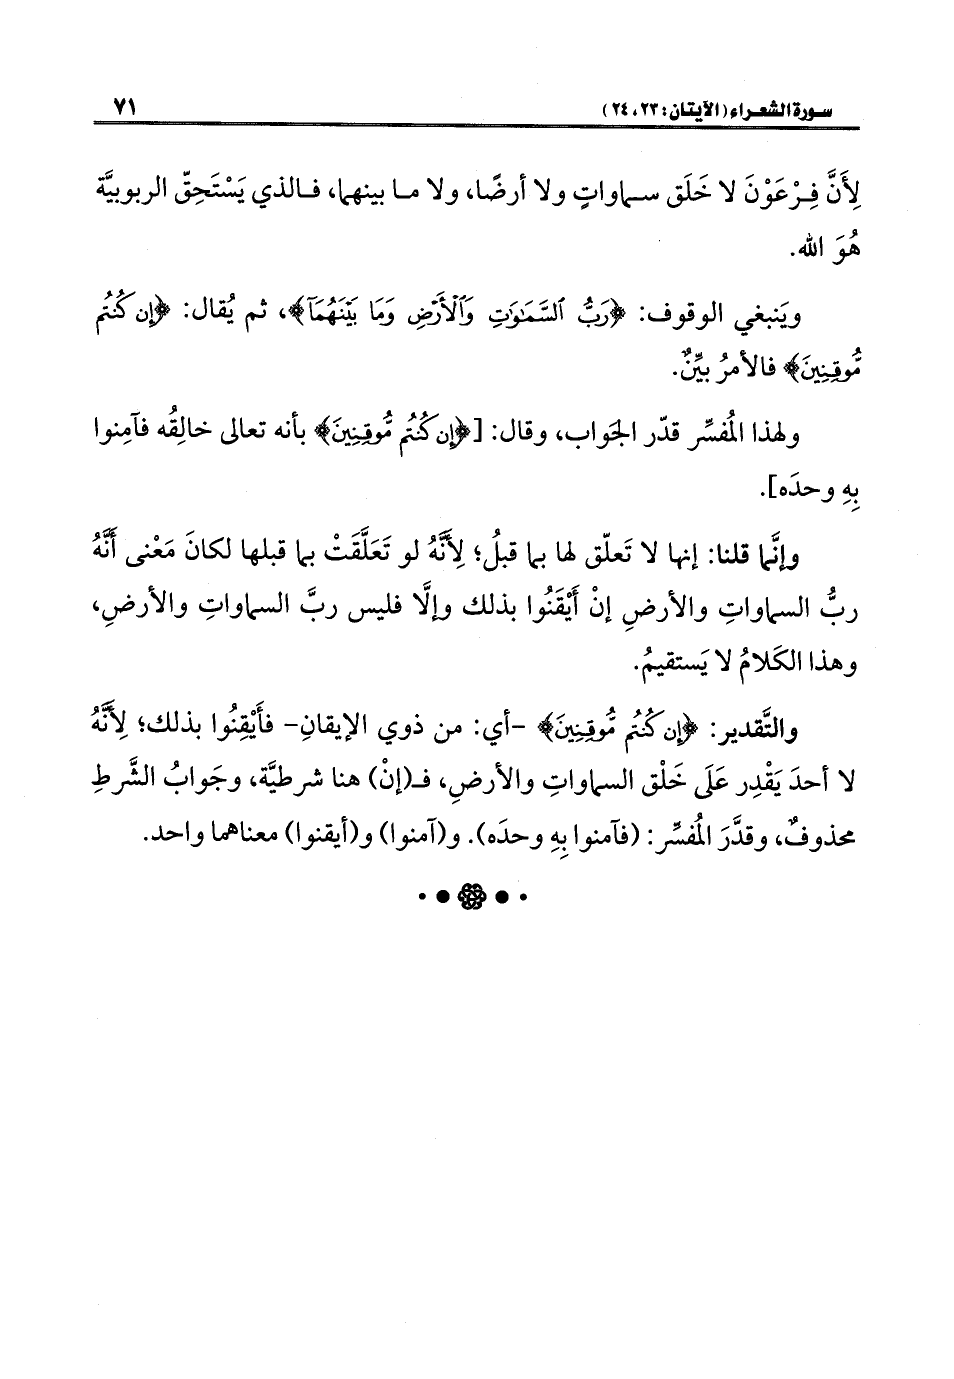 سورة الشعراء (الآيتان: ٢٣، ٢٤) ٧١
لِأَنَّ فِرْعَوْنَ لا خَلَق سماواتٍ ولا أرضًا، ولا ما بينهما، فالذي يَسْتَحِقّ الربوبيَّة
هُوَ الله.
ويَنبغي الوقوف: ﴿رَبُّ السَّمَٰوَٰتِ وَٱلْأَرْضِ وَمَا بَيْنَهُمَآ﴾، ثم يُقال: ﴿إِن كُنتُم
مُّوقِنِينَ﴾ فالأمرُ بيِّنٌ.
ولهذا المُفسِّر قدّر الجواب، وقال: [﴿إِن كُنتُم مُّوقِنِينَ﴾ بأنه تعالى خالِقُه فآمِنوا
بِهِ وحدَه].
وإنَّما قلنا: إنها لا تَعلّق لها بما قبلُ؛ لِأَنَّهُ لو تَعَلَّقَتْ بما قبلها لكانَ مَعْنى أَنَّهُ
ربُّ السماواتِ والأرضِ إنْ أَيْقَنُوا بذلك وإلَّا فليس ربَّ السماواتِ والأرضِ،
وهذا الكَلامُ لا يَستقيمُ.
والتَّقدير: ﴿إِن كُنتُم مُّوقِنِينَ﴾ -أي: من ذوي الإيقانِ- فأَيْقِنُوا بذلك؛ لِأَنَّهُ
لا أحدَ يَقْدِر عَلَى خَلْق السماواتِ والأرضِ، فـ(إنْ) هنا شرطيَّة، وجَوابُ الشَّرطِ
محذوفٌ، وقدَّرَ المُفسِّر: (فآمنوا بِهِ وحدَه). و(آمنوا) و(أيقنوا) معناهما واحد.